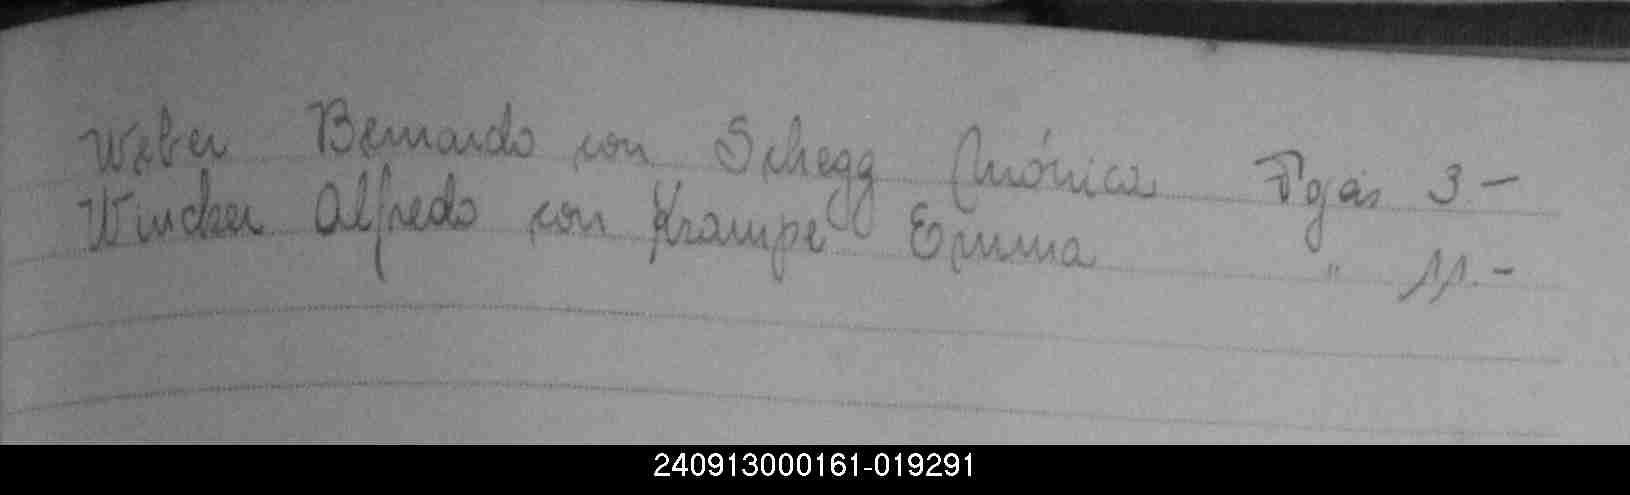 Weber Bernardo con Schegg Mónica Fojas 3.-
Wincker Alfredo con Krampe Emma " 11.-
240913000161-019291